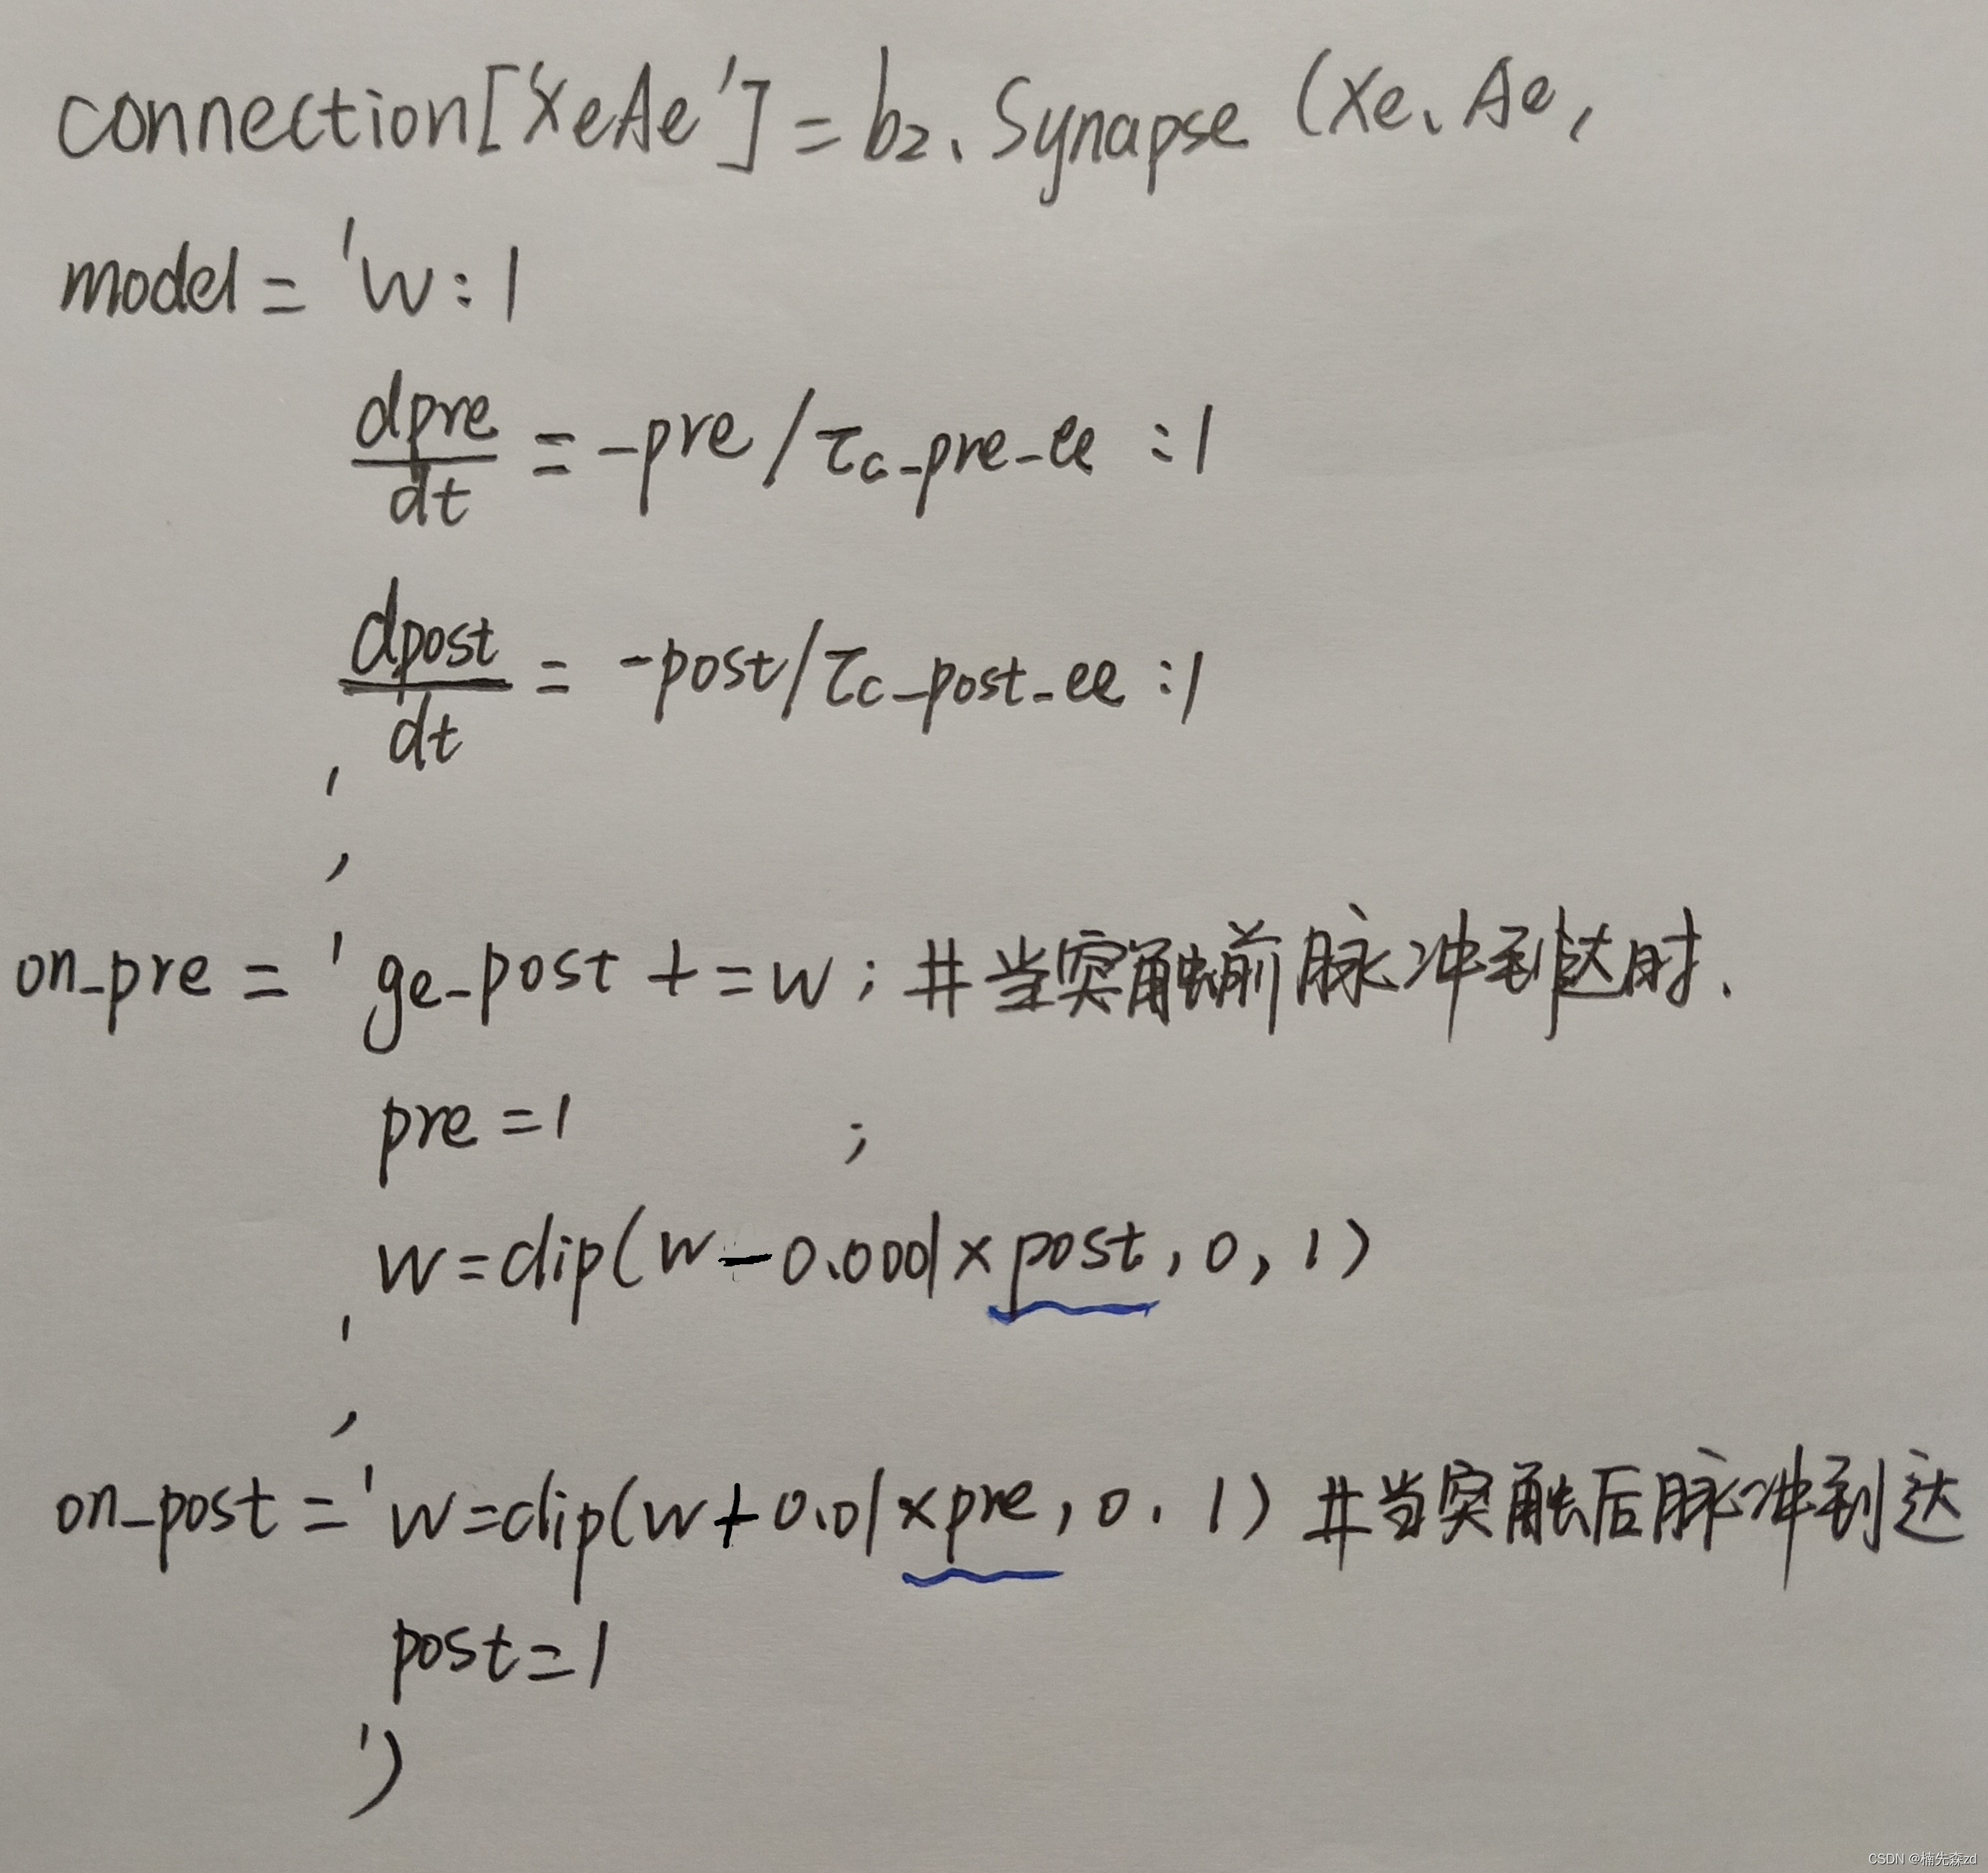 connection['XeAe'] = b2. Synapse (Xe、Ae,
model = 'w : 1
dpre/dt = -pre / τc_pre_ee : 1
dpost/dt = -post / τc_post_ee : 1
'
,
on_pre = ' ge_post += w ; #当突触前脉冲到达时.
pre = 1 ;
w = clip(w - 0.0001 × post, 0, 1)
'
,
on_post = ' w = clip(w + 0.01 × pre, 0, 1) #当突触后脉冲到达
post = 1
')
CSDN @楠先森zd